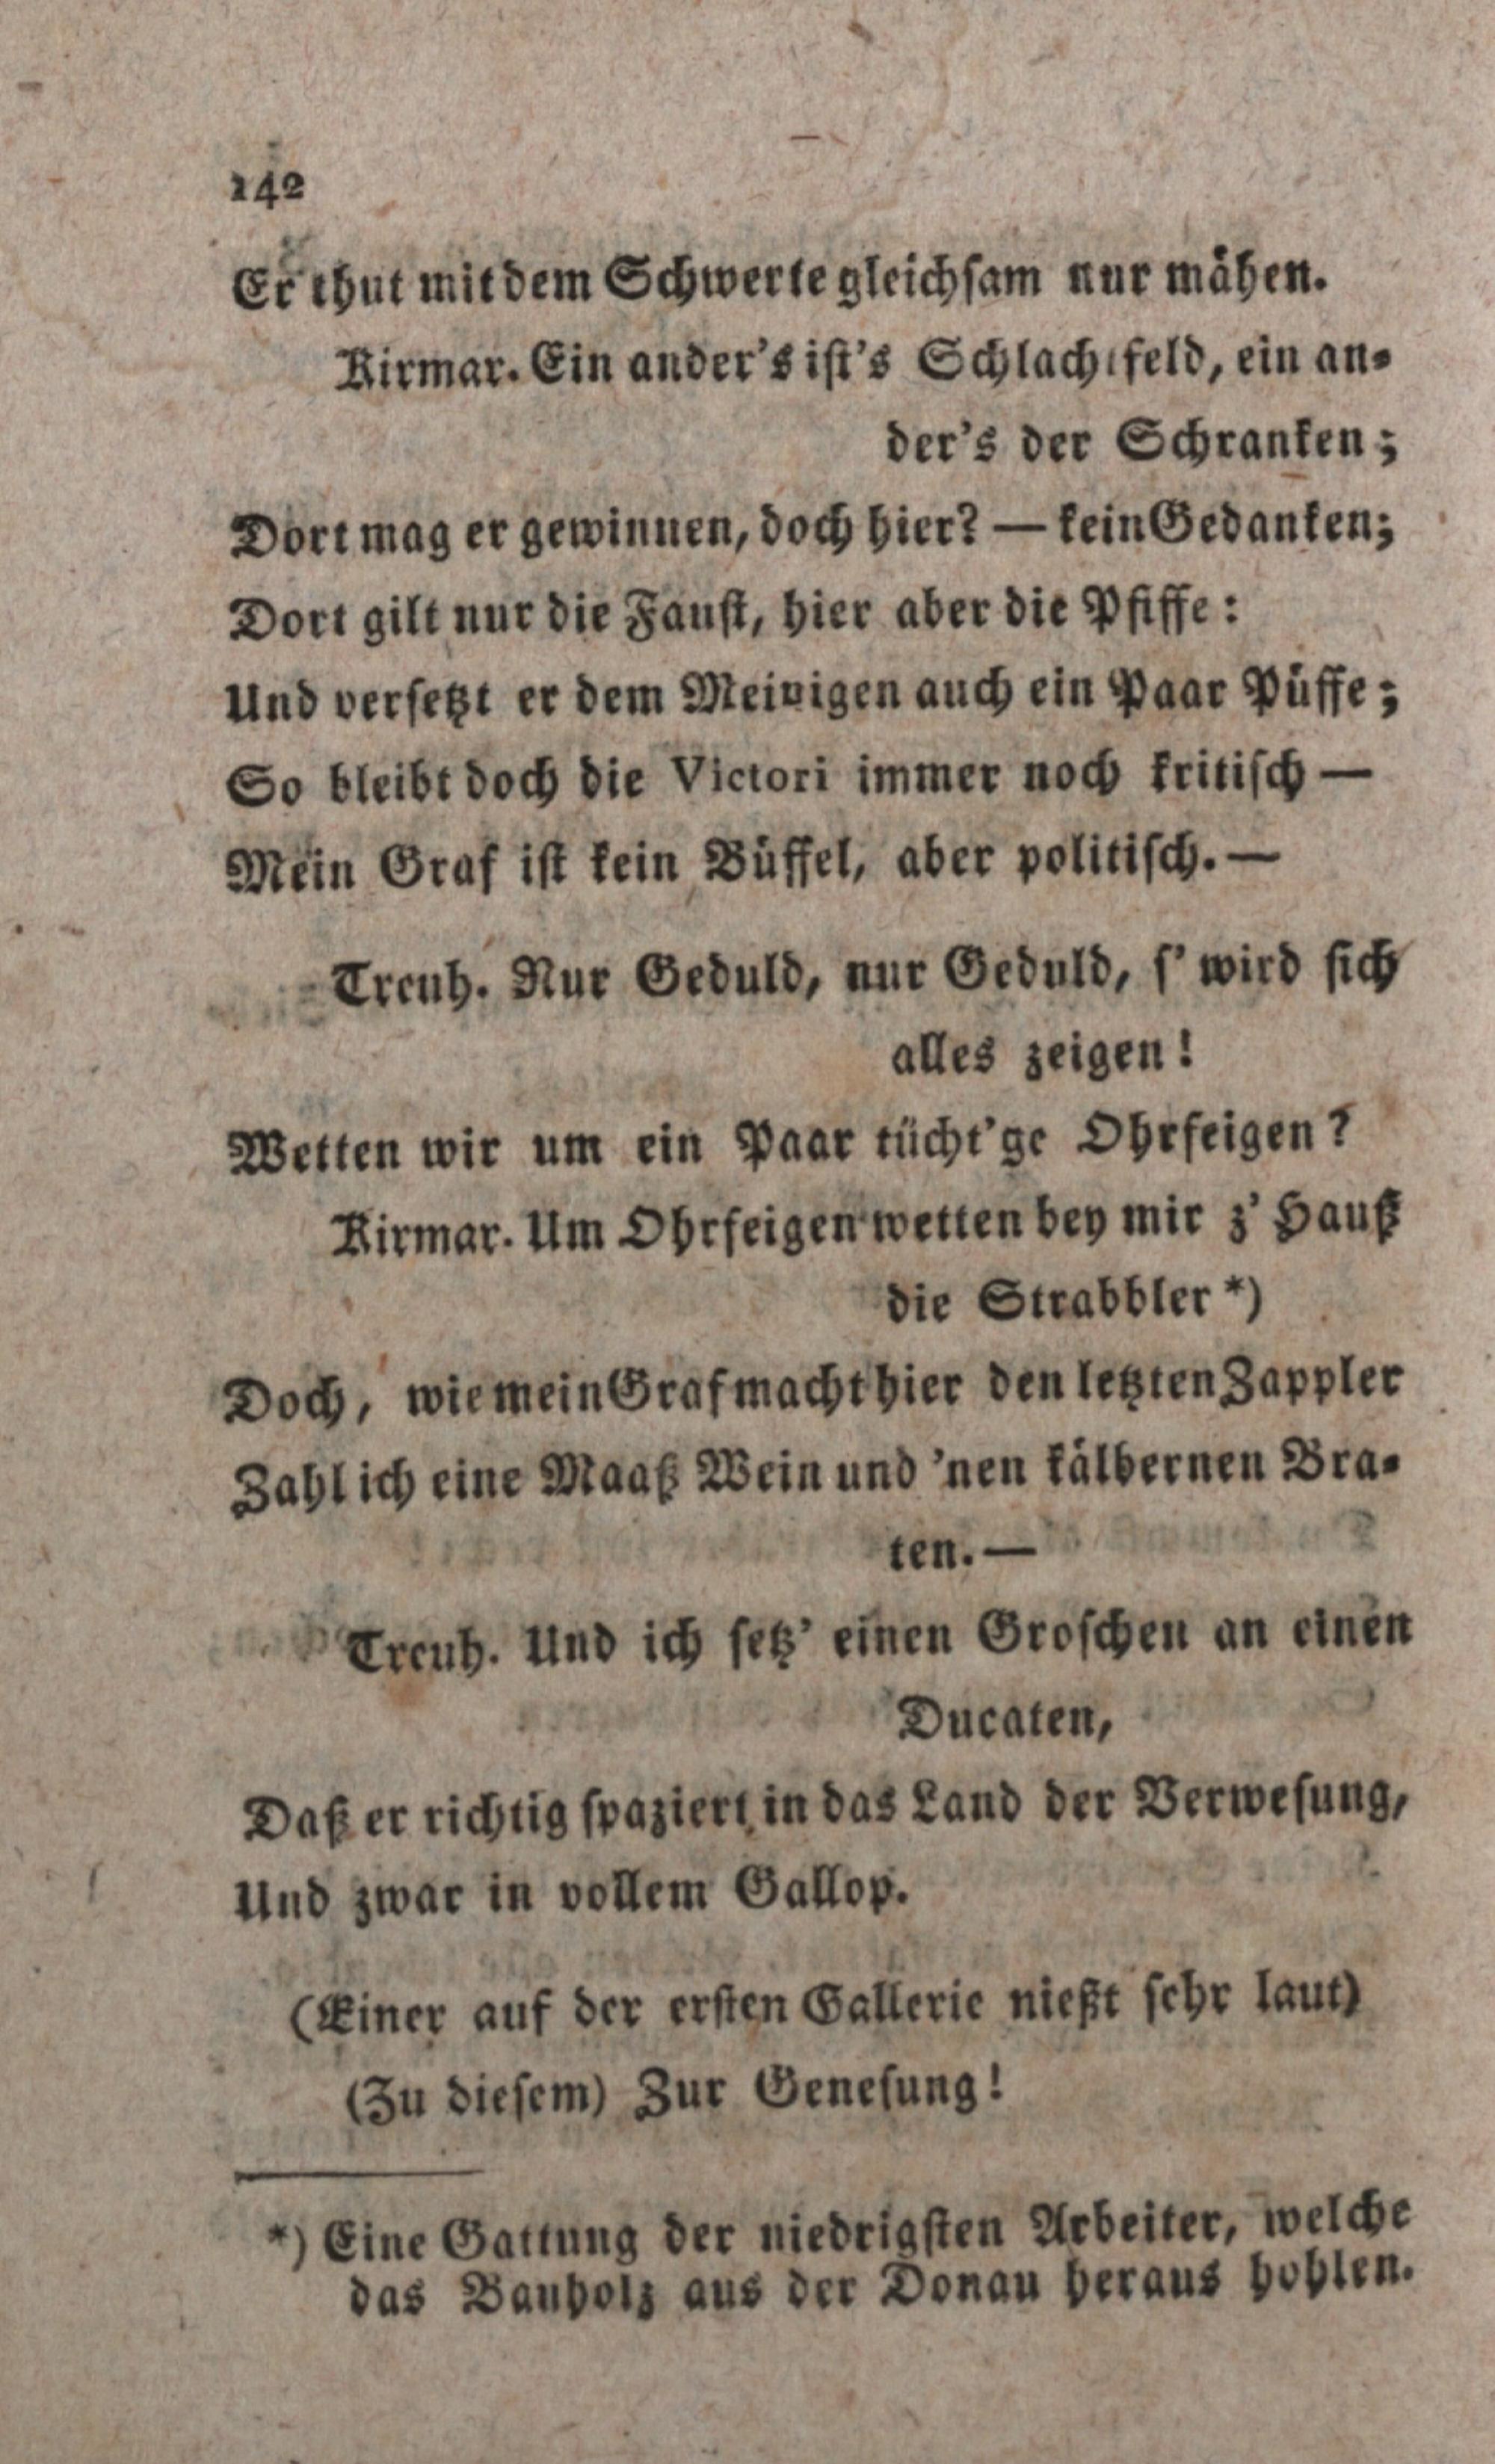 142
Er thut mit dem Schwerte gleichsam nur mähen.
Kirmar. Ein ander's ist's Schlachtfeld, ein an-
der's der Schranken;
Dort mag er gewinnen, doch hier? — kein Gedanken;
Dort gilt nur die Faust, hier aber die Pfiffe:
Und versetzt er dem Meinigen auch ein Paar Püffe;
So bleibt doch die Victori immer noch kritisch —
Mein Graf ist kein Büffel, aber politisch. —
Treuh. Nur Geduld, nur Geduld, s' wird sich
alles zeigen!
Wetten wir um ein Paar tücht'ge Ohrfeigen?
Kirmar. Um Ohrfeigen wetten bey mir z' Hauß
die Strabbler *)
Doch, wie mein Graf macht hier den letzten Zappler
Zahl ich eine Maaß Wein und 'nen kälbernen Bra-
ten. —
Treuh. Und ich setz' einen Groschen an einen
Ducaten,
Daß er richtig spaziert in das Land der Verwesung,
Und zwar in vollem Gallop.
(Einer auf der ersten Gallerie nießt sehr laut)
(Zu diesem) Zur Genesung!
*) Eine Gattung der niedrigsten Arbeiter, welche
das Bauholz aus der Donau heraus hohlen.